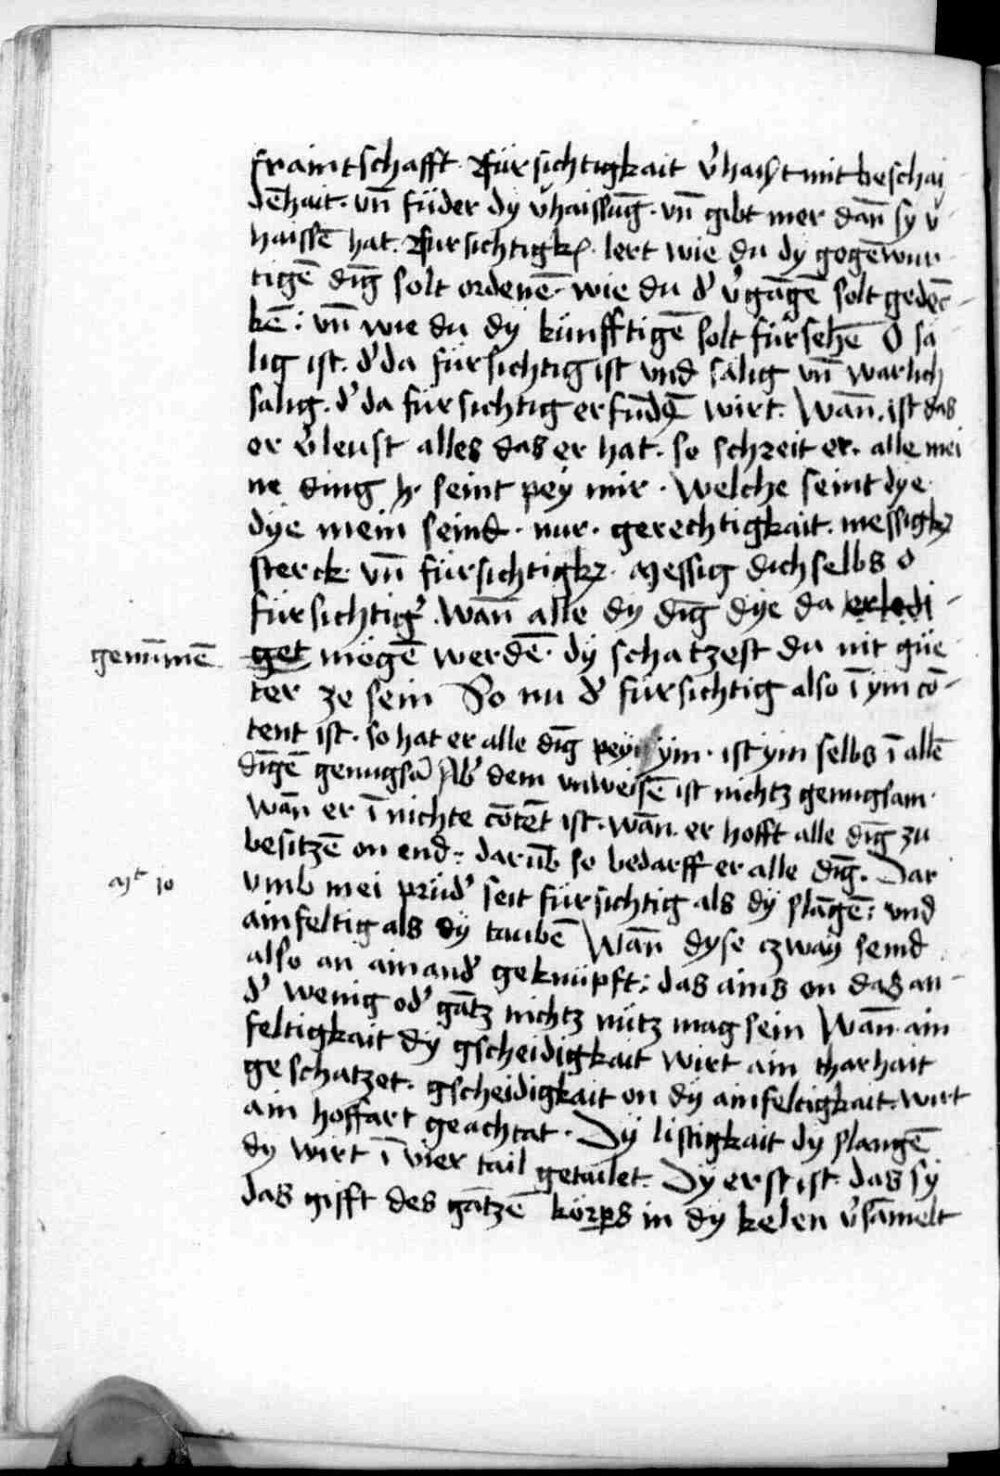 fraintschafft. Fürsichtigkait v̉haist mit beschai
dēhait. vn̄ füder dy v̉haissūg. vn̄ gibt mer dan̄ sy v̉
haissē hat. Fürsichtigk. lert wie du dy gegēwur
tigē dīg solt ordenē. wie du d' v̉gāgē solt gedēc
kē: vn̄ wie du dy künfftigē solt fürsehē O sä
lig ist. d' da fürsichtig ist vnd sälig vn̄ warlich
sälig. d' da fürsichtig erfūdē wirt. Wan̄. ist das
er v̉leust alles das er hat. so schreit er. alle mei
ne ding seint pey mir. Welche seint dye
dye mein seind. nur. gerechtigkait. messigkz
sterck. vn̄ fürsichtigkz. Messig dich selbs o
fürsichtig'. Wan̄ alle dy dīg dye da erledi
genūmē get mögē werdē. dy schatzest du nit güe
ter ze sein So nu d' fürsichtig also ī ym cō
tent ist. so hat er alle dīg pey ym. ist ym selbs ī allē
dīgē genugsā Ab' dem vnweisē ist nichtz genugsam.
wan̄ er ī nichte cōtēt ist. wan̄. er hofft alle dīg zu
besitzē on end: darūb so bedarff er alle dīg. Dar
Mt 10 vmb mei prüd' seit fürsichtig als dy slāgē: vnd
ainfeltig als dy taubē Wan̄ dyse czway seind
also an ainand' geknüpft: das ains on das an
d' wenig od' gātz nichtz nütz mag sein Wan̄. ain
feltigkait dy gscheidigkait wirt ain tharhait
geschatzet. gscheidigkait on dy ainfeltigkait. wirt
ain hoffart geachtat. Dy listigkait dy slangē
dy wirt ī vier tail getailet. Dy erst ist. das sy
das gifft des gātzē körps in dy kelen v̉sāmelt